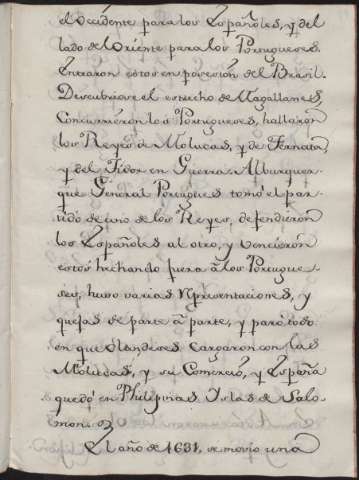 el Occidente para los Españoles, y del
lado de Oriente para los Portugueses.
Entraron estos en posesión del Brasil.
Descubriose el estrecho de Magallanes,
Concurrieron los Portugueses, hallaron
los Reyes de Molucas, y de Ternate,
y del Tidor en Guerra: Alburquer-
que General Portugues tomó el par-
tido de uno de los Reyes, defendieron
los Españoles al otro, y vencieron
estos hechando fuera á los Portugue-
ses, huvo varias representaciones, y
quejas de parte á parte, y paró todo
en que Olandeses cargaron con las
Molucas, y su Comercio, y España
quedó en Philipinas, Yslas de Salo-
mon
El año de 1631. se movio una